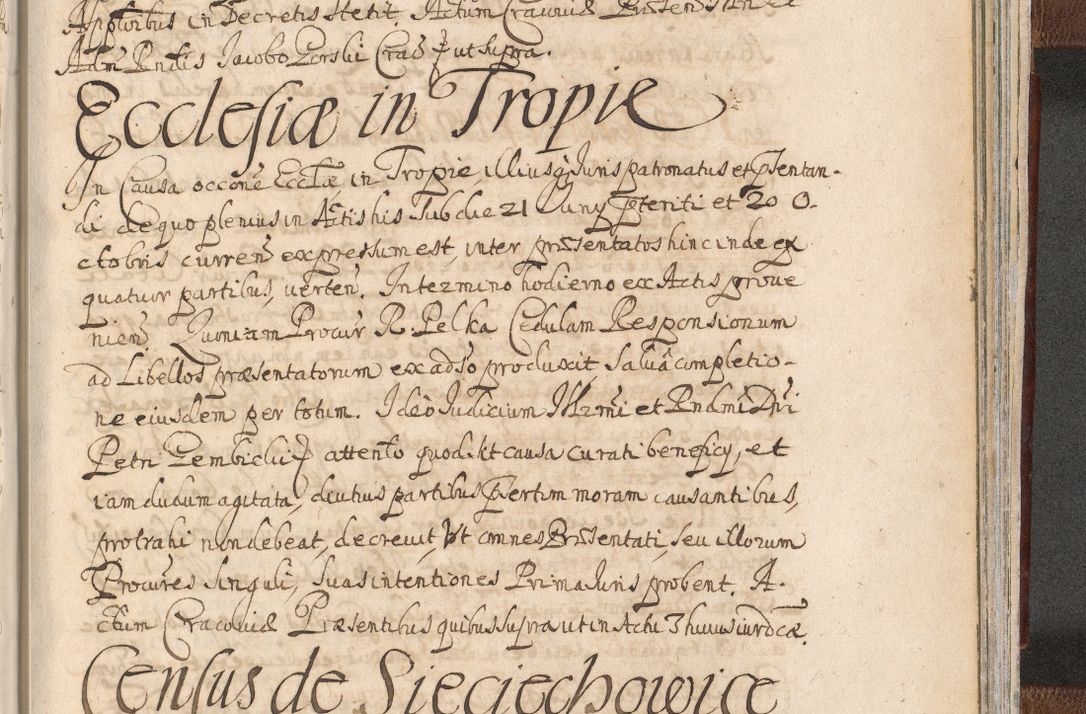 in Decretis stetit. Actum Cracoviæ Præsen
Adm Rndis Jacobo Gorski Crac ut supra.
Ecclesiæ in Tropie
In Causa occone Eccłæ in Tropie, illiusq Juris patronatus et Psentan-
di de quo plenius in Actis his sub die 21 Juny pteriti et 20 O-
ctobris curren expressum est, inter præsentatos hinc inde ex
quatuor partibus, verten. In termino hodierno ex Actis prove
nien. Quoniam Procur R. Pelka Cedulam Responsionum
ad Libellos præsentatorum ex adso produxit salva completio-
ne eiusdem per totum. Ideo Judicium Illrmi et Rndmi Dni
Petri Gembicki attento quod sit causa curati beneficy, et
iam dudum agitata, diutius partibus Psertim moram causantibus,
protrahi non debeat, decrevit, Ut omnes Præsentati, seu illorum
Procures singuli, suas intentiones Prima Juris probent. A-
ctum Cracoviæ Præsentibus quibus supra ut in Actu 3 huius iurdcæ.
Census de Sieciechowice